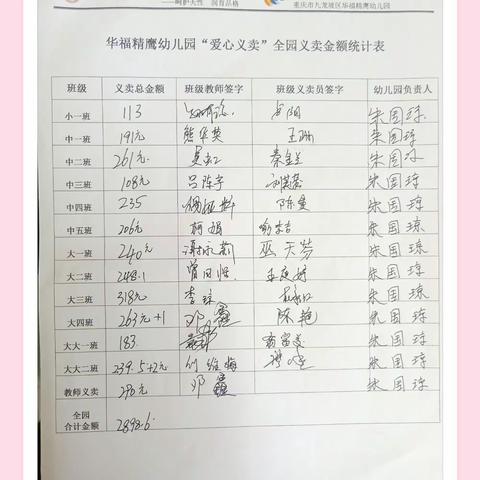 ——呵护天性 润育品格
重庆市九龙坡区华福精鹰幼儿园
华福精鹰幼儿园“爱心义卖”全园义卖金额统计表
班级 义卖总金额 班级教师签字 班级义卖员签字 幼儿园负责人
小一班 113 朱国琼
中一班 191元 熊华英 王琳 朱国琼
中二班 261元 秦金兰 朱国琼
中三班 108元 吕陈宇 朱国琼
中四班 235 陈曼 朱国琼
中五班 206元 柯娟 朱国琼
大一班 240元 巫天芬 朱国琼
大二班 248.1 曾同悦 朱国琼
大三班 318元 李琼 朱国琼
大四班 263元+1 邓鑫 陈艳 朱国琼
大大一班 183 朱国琼
大大二班 239.5+2元 刘维梅 朱国琼
教师义卖 290元 邓鑫 朱国琼
全园
合计金额 2898.6